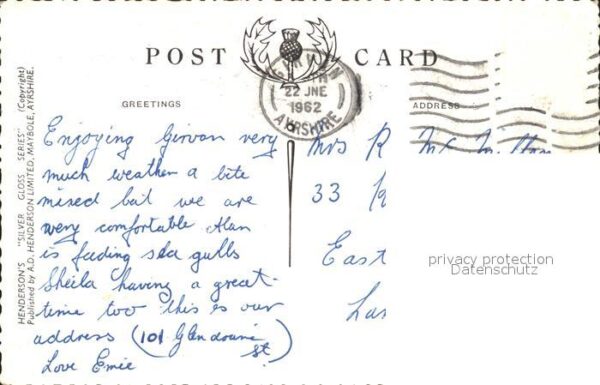 POST CARD
GREETINGS
ADDRESS
GIRVAN
22 JNE
1962
AYRSHIRE
HENDERSON'S "SILVER GLOSS SERIES" (Copyright)
Published by A.D. HENDERSON LIMITED, MAYBOLE, AYRSHIRE.
Enjoying Girvan very
much weather a bite
mixed but we are
very comfortable Alan
is feeding sea gulls
Sheila having a great
time too this is our
address (101 Glendoune
st.)
Love Emie
Mrs R
33
East
Lan
privacy protection
Datenschutz